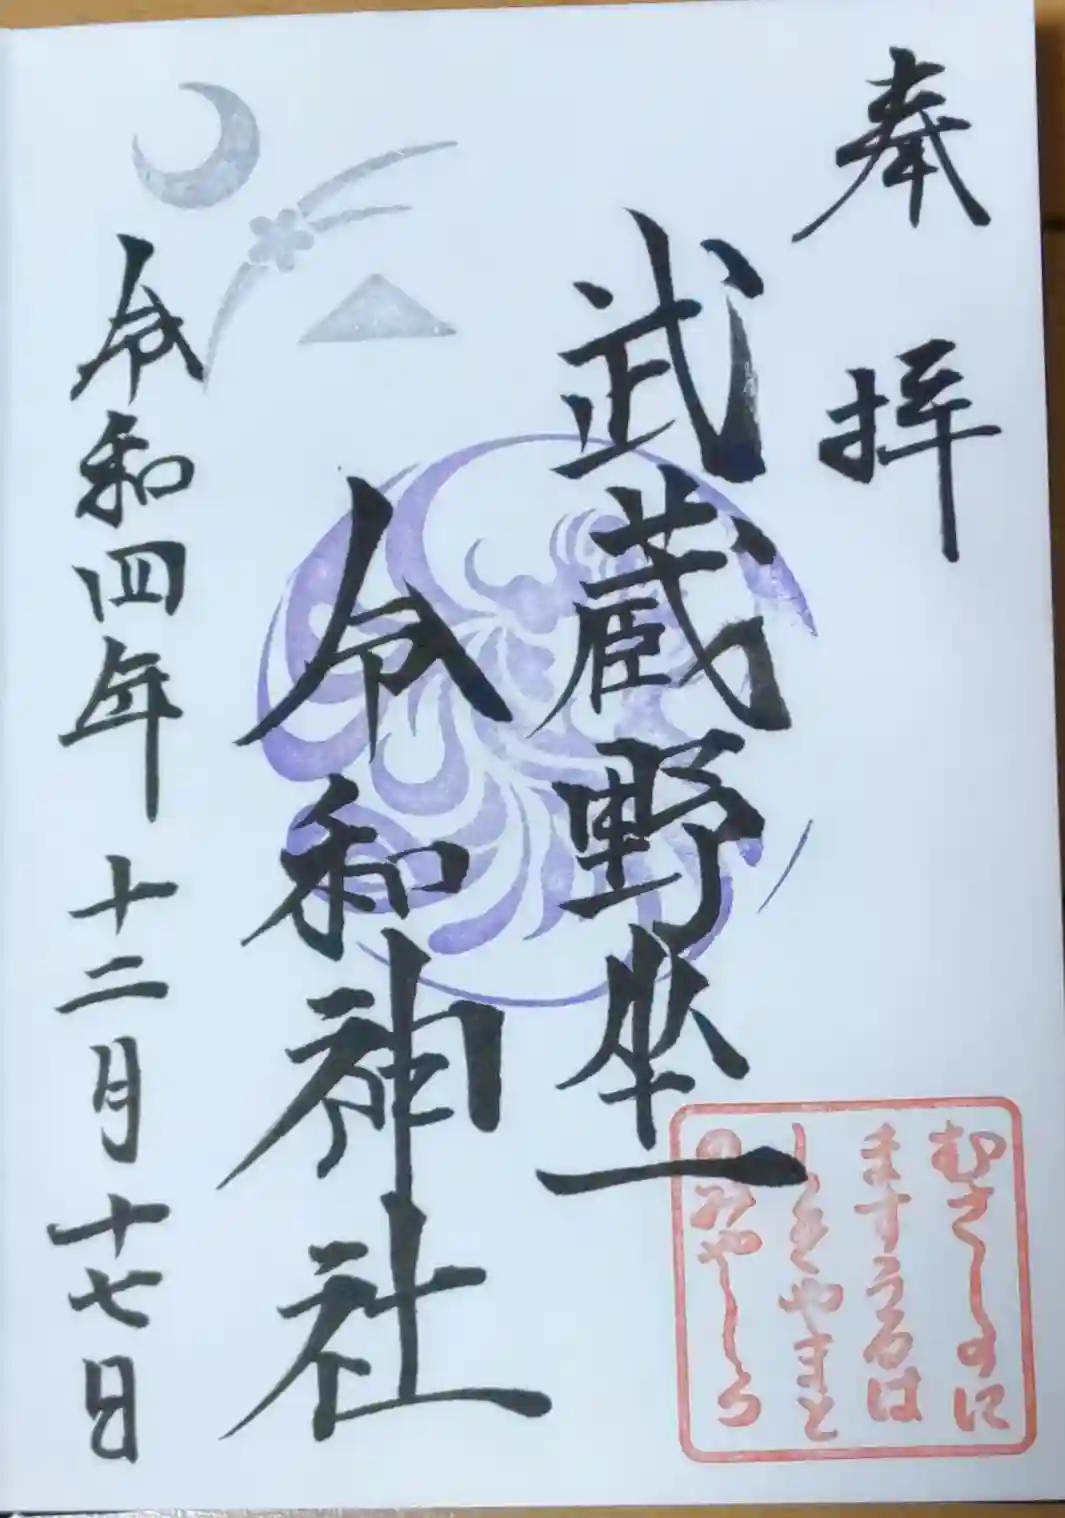 奉拝
武蔵野坐
令和神社
令和四年十二月十七日
むさしのに
ますうるは
しきやまと
のみやしろ